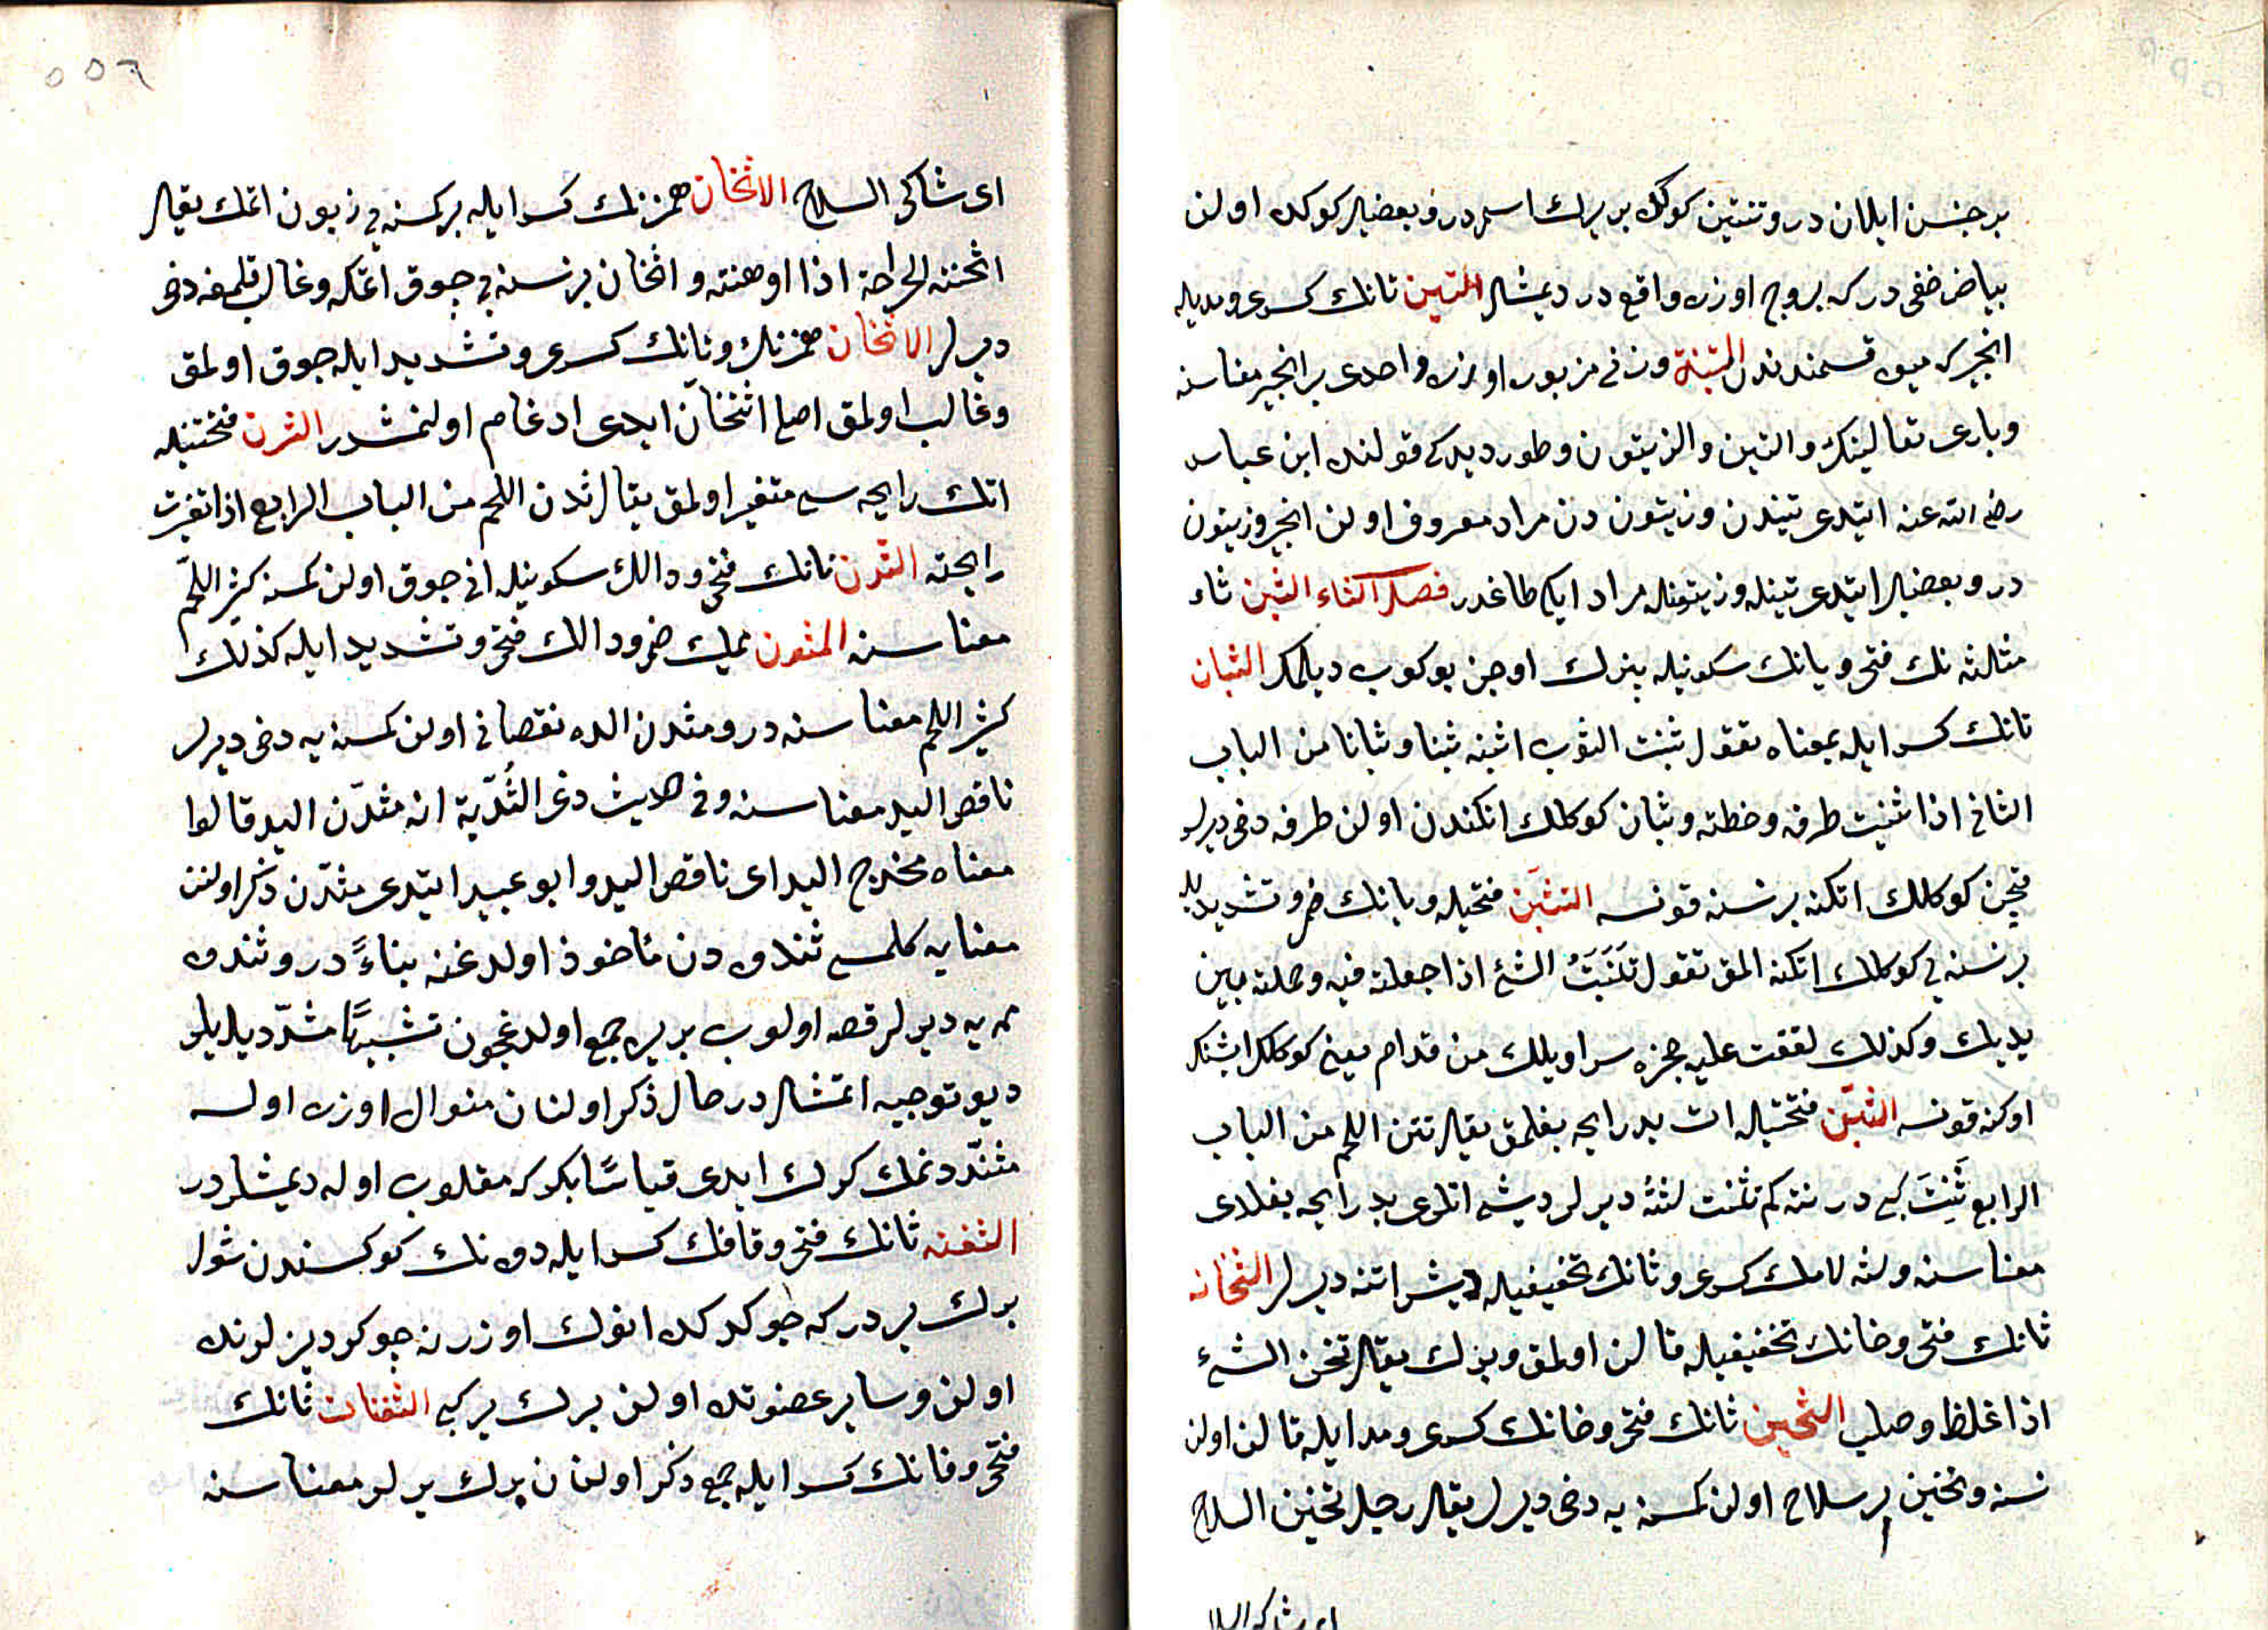 بر جنس ايلان در وتنين كوكك بر يرك اسمدر وبعضيلر كوكده اولن
بياض خفى در كه بروج اوزره واقع در ديمشلر التين تانك كسرى ومديله
انجير كه ميوه قسمندندن التينة وزنى مزبور اوزره واحدى بر انجير معناسنه
وبارى تعالينك والتين والزيتون وطور ديدكى قولنده ابن عباس
رضى الله عنه ايتدى تيندن وزيتون دن مراد معروف اولن انجير وزيتون
در وبعضيلر ايتدى تينله وزيتونله مراد ايكى طاغدر فصل الثاء الثبن ثاء
مثلثه نك فتحى وبانك سكونيله بزك اوجن بوكوب ديكمك الثبان
ثانك كسر ايله بمعناه تقول ثبنت الثوب اثبنه ثبنا وثبانا من الباب
الثانى اذا ثنيت طرفه وخطته وثبان كوكلك اتكندن اولن طرفه دخى ديرلر
قچن كوكلك اتكنه بر نسنه قونسه التثبن فتحيله وبانك ضم وتشديديله
بر نسنه يى كوكلك اتكنه المق تقول تثبنت الشئ اذا جعلته فيه وحملته بين
يديك وكذلك لففت عليه حجزة سراويلك من قدام يعنى كوكلك اتنك
اوكنه قونسه الثتن فتحتيله ات بد رايحه بغلمق يقال ثتن اللحم من الباب
الرابع ثنت كبى در نته كم ثتنت لثته ديرلر ديش اتلرى بد رايحه بغلادى
معناسنه ولثه لامك كسرى وثانك تخفيفيله ديش اتنه ديرلر الثخانه
ثانك فتحى وخانك تخفيفيله قالن اولمق وبزك يقال ثخن الشئ
اذا غلظ وصلب الثخين ثانك فتحى وخانك كسرى ومد ايله قالن اولن
نسنه وثخين پر سلاح اولن كمسنه يه دخى ديرلر يقال رجل ثخين السلاح
اى شاكى السلا
٥٥٦
اى شاكى السلاح الاثخان همزنك كسر ايله بر كمسنه يى زبون اتمك يقال
اثخنته الجراحة اذا اوهنته واثخان بر نسنه يى چوق اتمكه وغالب قلمغه دخى
ديرلر الاثخان همزنك وثانك كسرى وتشديد ايله چوق اولمق
وغالب اولمق اصلى اثتخان ايدى ادغام اولنمشدر الثدن فتحتيله
اتك رايحه سى متغير اولمق يقال ثدن اللحم من الباب الرابع اذا تغيرت
رايحته الثدن ثانك فتحى ودالك سكونيله اتى چوق اولن كمسنه كثير اللحم
معناسنه المثدن ميمك ضم ودالك فتحى وتشديد ايله كذلك
كثير اللحم معناسنه در ومثدن الده نقصانى اولن كمسنه يه دخى ديرلر
ناقص اليد معناسنه وفى حديث ذى الثدية انه مثدن اليد قالوا
معناه مخدج اليد اى ناقص اليد وابو عبيد ايتدى مثدن ذكر اولنن
معنايه كلمسى ثندوه دن مأخوذ اولدغنه بناءً در وثندوه
ممه يه ديرلر قصه اولوب بر يره جمع اولدغيچون تشبيهًا مثدن ديديلر
ديو توجيه اتمشلر در حال ذكر اولنان منوال اوزره اولسه
مثند دنمك كرك ايدى قياسًا بكر كه مقلوب اوله ديمشلر در
الثفنه ثانك فتحى وفانك كسر ايله دوه نك كوكسندن شول
يرك ير در كه چوكدكده انوك اوزرنه چوكر ديزلرنده
اولن وساير عضوتده اولن يرك ير كبى الثفنات ثانك
فتحى وفانك كسر ايله جمع ذكر اولنان يرك ير لر معناسنه